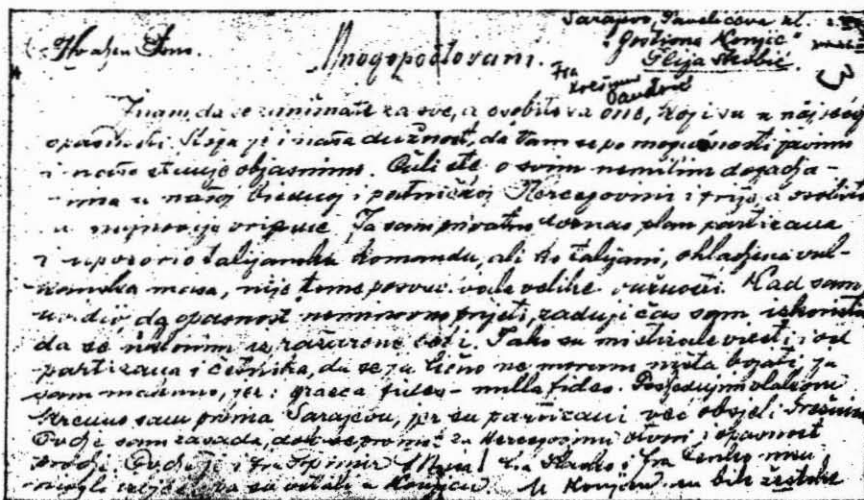 Sarajevo, Pavelićeva ul.
"Gostiona Konjic"
Hvaljen Isus. Ilija
Mnogopoštovani. Fra
Krešimir
Pandžić
Znam, da se zanimate za sve, a osobito za one, koji su u najvećoj
opasnosti. Stoga je i naša dužnost, da Vam se po mogućnosti javimo
i naše stanje objasnimo. Čuli ste o svim nemilim događa-
jima u našoj bijednoj i patničkoj Hercegovini i prije, a osobito
u najnovije vrijeme. Ja sam privatno doznao plan partizana
i upozorio talijansku komandu, ali ko talijani, ohladjena vul-
kanska masa, nije tome posvec. vala velike važnosti. Kad sam
uvidio, da opasnost prijeti, zadnji čas sam iskoristio
da se uklonim iz Tako su mi stizale vijesti, i od
partizana i četnika, da se ja lično ne moram ništa bojati, ja
sam jer: graeca fides - nulla fides. vlakom
krenuo sam prema Sarajevu, jer su partizani već obsjeli
Ovdje sam zasada, dok se promet za Hercegovinu otvori i opasnost
prodje. Ovdje je i fra fra Slavko i fra nisu
mogli su ostali u Konjicu. U Konjicu su bile žestoke